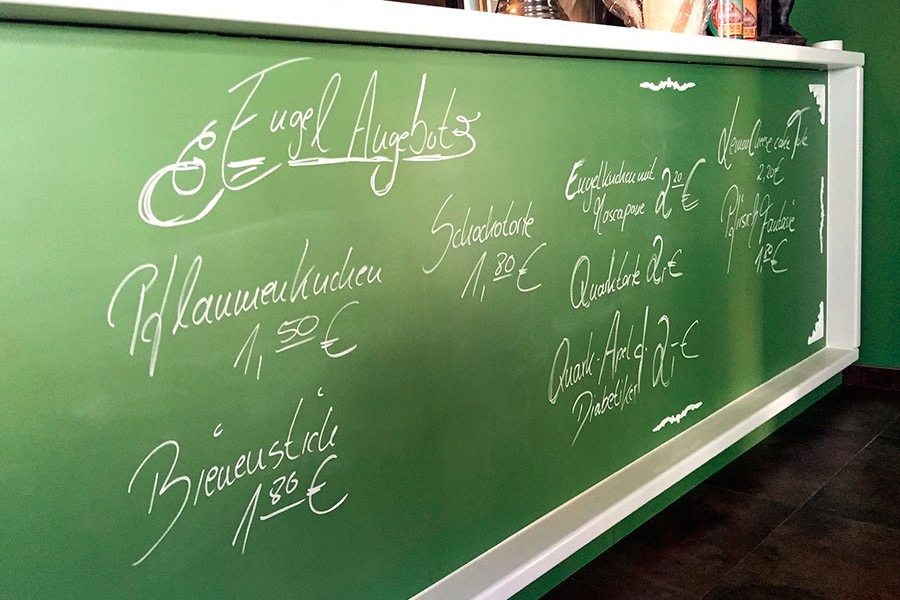 Engel Angebot
Pflaumenkuchen
1,50 €
Bienenstich
1,80 €
Schockotorte
1,80 €
Engelkuchen mit
Mascapone 2,20 €
Quarktorte 2,- €
Quark-Apfel f.
Diabetiker 2,- €
Lemon Cheesecake Torte
2,20 €
Pfirsich Fantasie
1,80 €